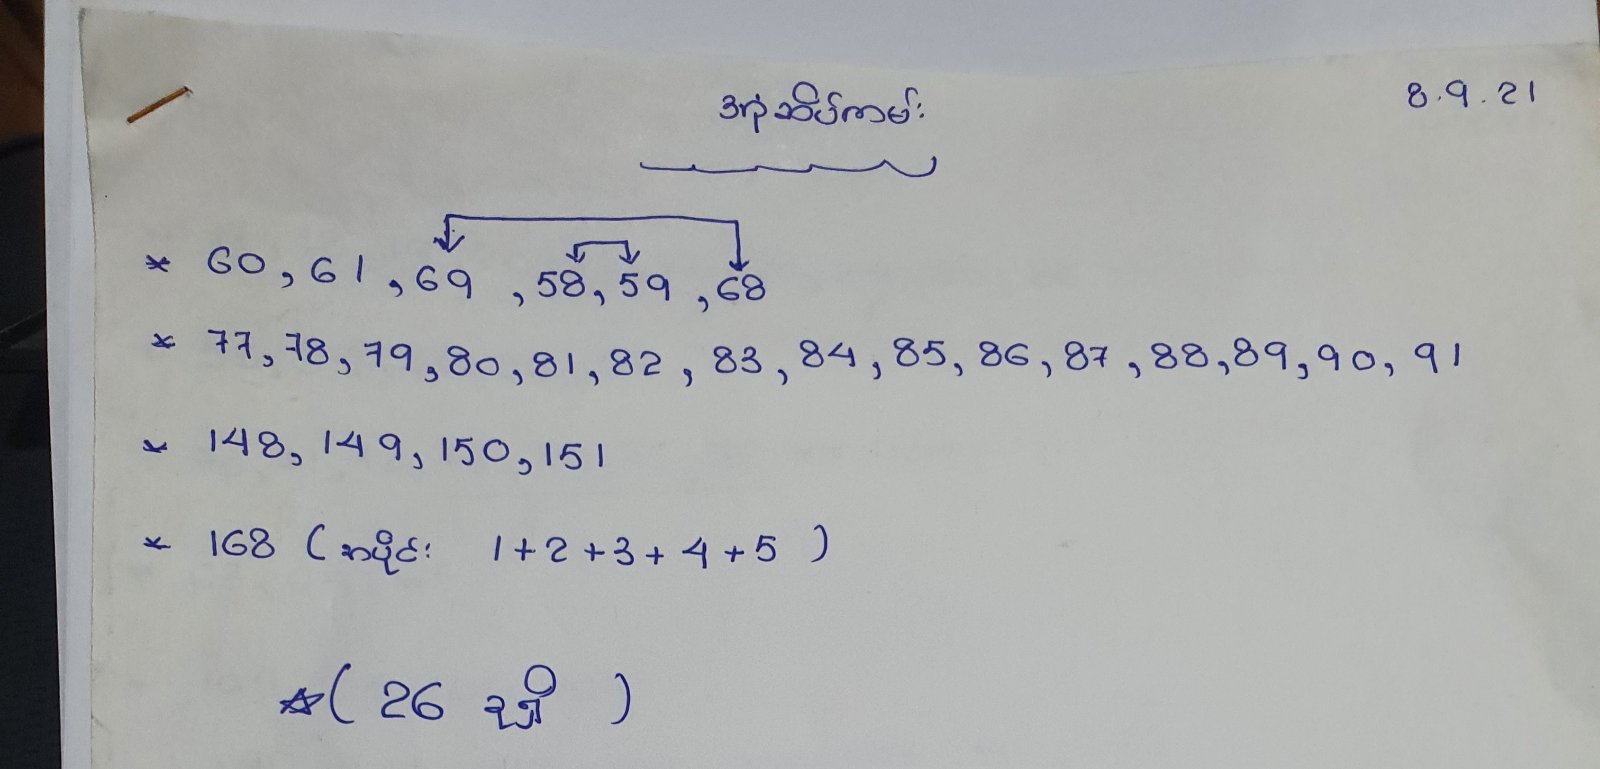 အုံဆိပ်ကမ်း 8.9.21
* 60, 61, 69, 58, 59, 68
* 77, 78, 79, 80, 81, 82, 83, 84, 85, 86, 87, 88, 89, 90, 91
* 148, 149, 150, 151
* 168 (အပိုင်း 1+2+3+4+5)
(26 ချို)